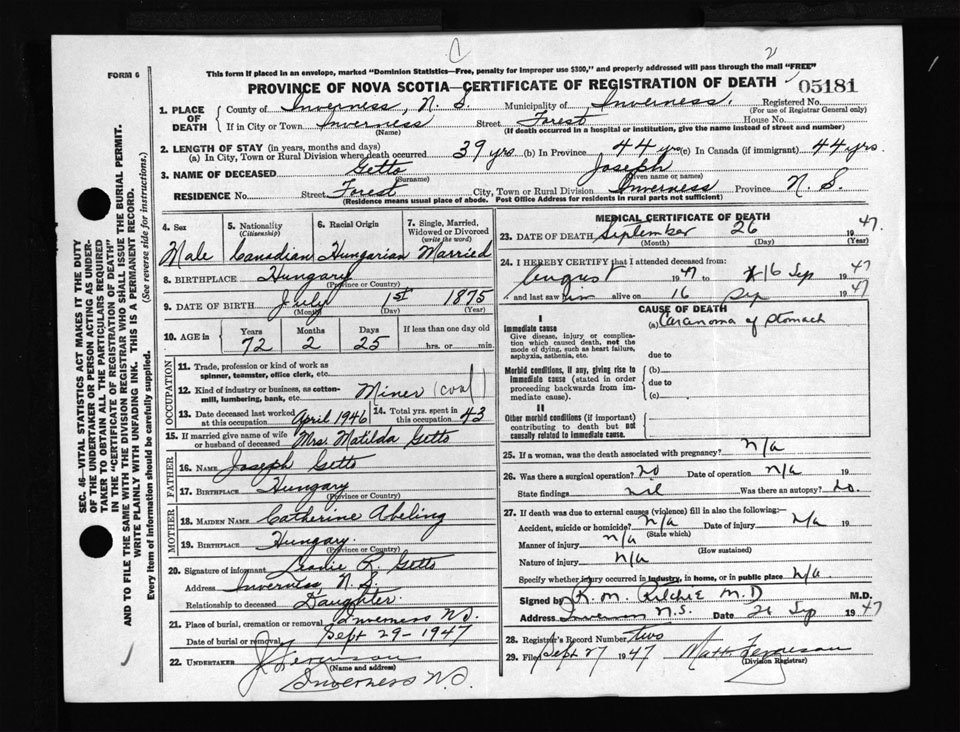 This form if placed in an envelope, marked "Dominion Statistics—Free, penalty for improper use $300," and properly addressed will pass through the mail "FREE"
FORM 6
PROVINCE OF NOVA SCOTIA—CERTIFICATE OF REGISTRATION OF DEATH
05181
1. PLACE OF DEATH
County of Inverness, N. S. Municipality of Inverness. Registered No.
(For use of Registrar General only)
If in City or Town Inverness Street Forest House No.
(Name) (If death occurred in a hospital or institution, give the name instead of street and number)
2. LENGTH OF STAY (in years, months and days)
(a) In City, Town or Rural Division where death occurred 39 yrs (b) In Province 44 yrs (c) In Canada (if immigrant) 44 yrs.
3. NAME OF DECEASED Getto Joseph
(Surname) (Given name or names)
RESIDENCE No. Street Forest City, Town or Rural Division Inverness Province N. S.
(Residence means usual place of abode. Post Office Address for residents in rural parts not sufficient)
SEC. 46—VITAL STATISTICS ACT MAKES IT THE DUTY
OF THE UNDERTAKER OR PERSON ACTING AS UNDER-
TAKER TO OBTAIN ALL THE PARTICULARS REQUIRED
IN THE "CERTIFICATE OF REGISTRATION OF DEATH"
AND TO FILE THE SAME WITH THE DIVISION REGISTRAR WHO SHALL ISSUE THE BURIAL PERMIT.
WRITE PLAINLY WITH UNFADING INK. THIS IS A PERMANENT RECORD.
Every item of information should be carefully supplied. (See reverse side for instructions.)
4. Sex 5. Nationality (Citizenship) 6. Racial Origin 7. Single, Married, Widowed or Divorced (write the word)
Male Canadian Hungarian Married
8. BIRTHPLACE Hungary
(Province or Country)
9. DATE OF BIRTH July 1st 1875
(Month) (Day) (Year)
10. AGE in Years Months Days If less than one day old
72 2 25 hrs. or min.
OCCUPATION
11. Trade, profession or kind of work as
spinner, teamster, office clerk, etc.
12. Kind of industry or business, as cotton-
mill, lumbering, bank, etc. Miner (coal)
13. Date deceased last worked at this occupation April 1946 14. Total yrs. spent in this occupation 43
15. If married give name of wife or husband of deceased Mrs. Matilda Getto
FATHER
16. NAME Joseph Getto
17. BIRTHPLACE Hungary
(Province or Country)
MOTHER
18. MAIDEN NAME Catherine Abeling
19. BIRTHPLACE Hungary.
(Province or Country)
20. Signature of informant R. Getto
Address Inverness N. S.
Relationship to deceased Daughter.
21. Place of burial, cremation or removal Inverness N.S.
Date of burial or removal Sept 29 - 1947
22. UNDERTAKER J Ferguson
(Name and address)
Inverness N.S.
MEDICAL CERTIFICATE OF DEATH
23. DATE OF DEATH September 26 1947
(Month) (Day) (Year)
24. I HEREBY CERTIFY that I attended deceased from:
August 1947 to 16 Sep 1947
and last saw him alive on 16 Sep 1947
CAUSE OF DEATH
I
Immediate cause (a) Carcanoma of Stomach
Give disease, injury or complica-
tion which caused death, not the
mode of dying, such as heart failure,
asphyxia, asthenia, etc. due to
Morbid conditions, if any, giving rise to (b)
immediate cause (stated in order due to
proceeding backwards from im-
mediate cause). (c)
II
Other morbid conditions (if important)
contributing to death but not
causally related to immediate cause.
25. If a woman, was the death associated with pregnancy? n/a
26. Was there a surgical operation? No Date of operation n/a 19
State findings nil Was there an autopsy? No.
27. If death was due to external causes (violence) fill in also the following:—
Accident, suicide or homicide? n/a Date of injury n/a 19
(State which)
Manner of injury n/a
(How sustained)
Nature of injury n/a
Specify whether injury occurred in industry, in home, or in public place n/a.
Signed by K. M. Ritchie M.D M.D.
Address Inverness N.S. Date 26 Sep 1947
28. Registrar's Record Number two
29. Filed Sept 27 1947 Matt Ferguson
(Division Registrar)